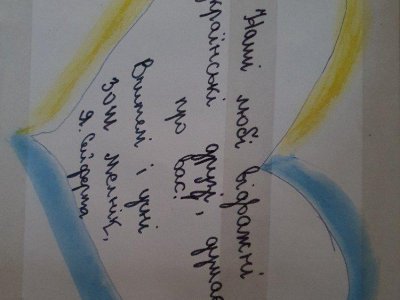 Наші любі відважні
країнські друзі, думає
про вас!
Вчителі і учні
Зош Мелнік,
Я. Сейферта